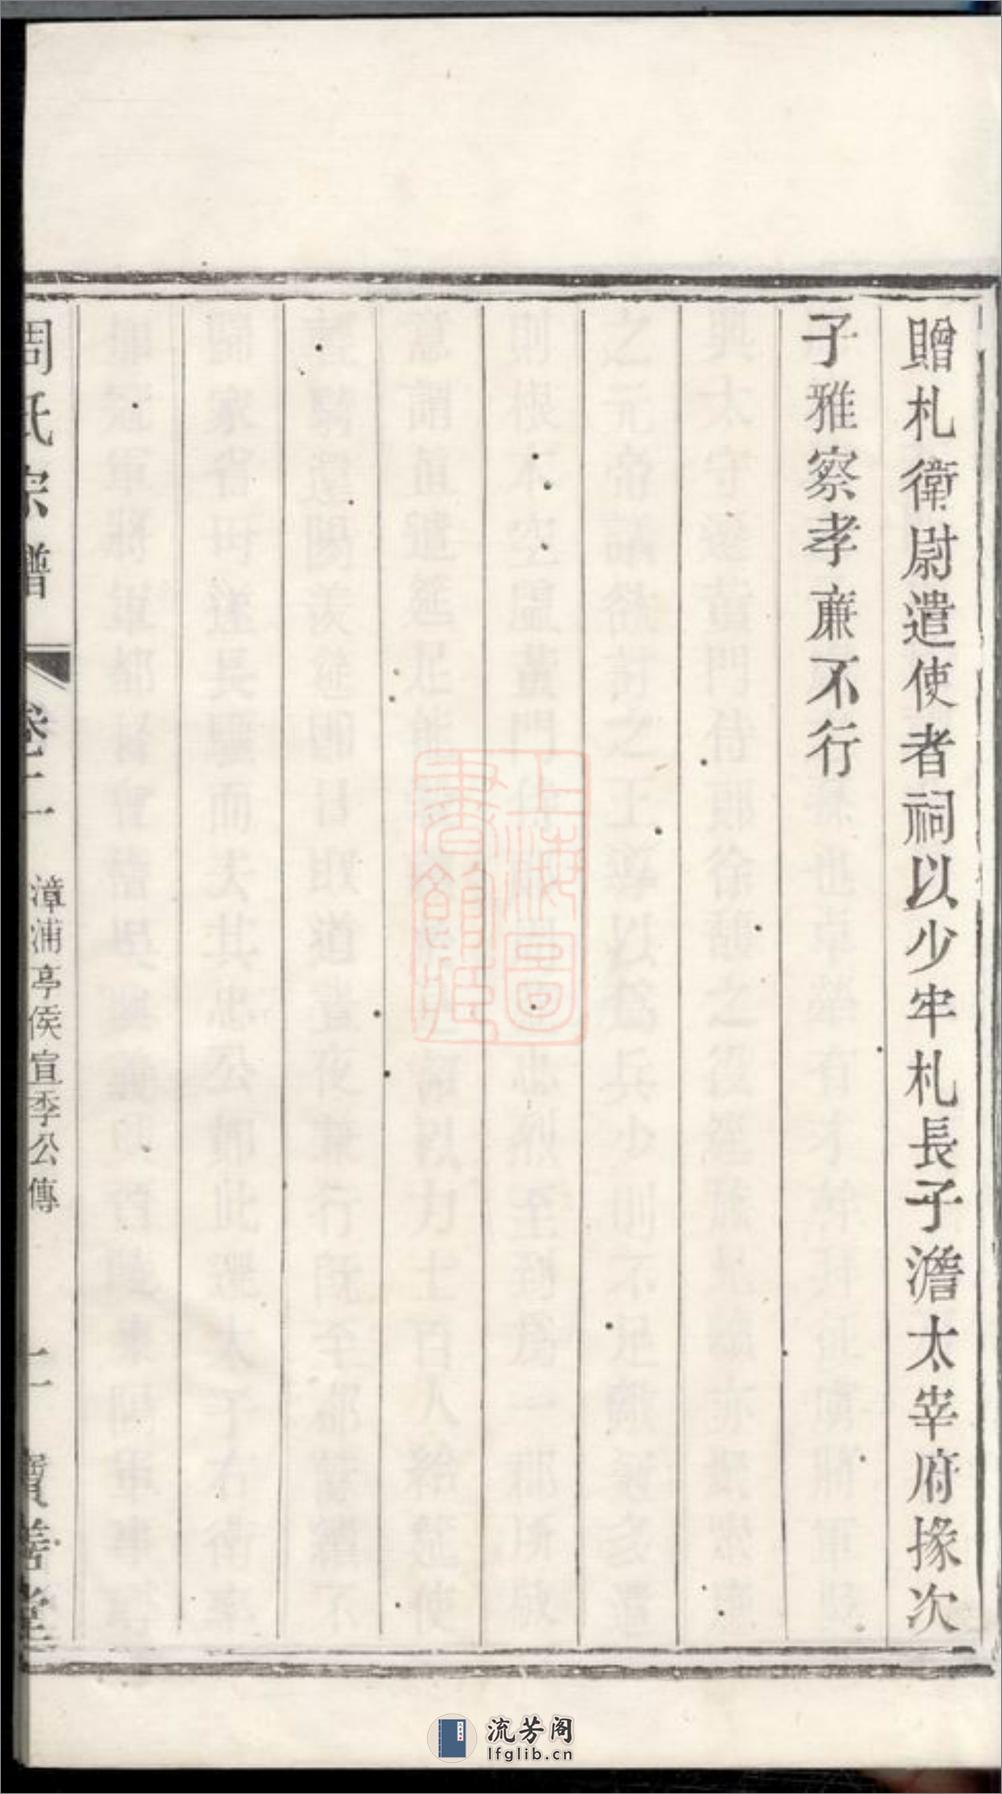 贈札衛尉遣使者祠以少牢札長子澹太宰府掾次
子雅察孝廉不行
周氏宗譜
卷二
漳浦亭侯宣季公傳
二
寶善堂
上海圖
書館藏
流芳阁
lfglib.cn